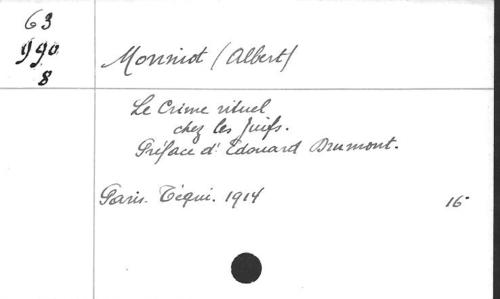 63
990
8
Monniot (Albert)
Le Crime rituel
chez les Juifs.
Préface d'Edouard Drumont.
Paris. Téqui. 1914
16°